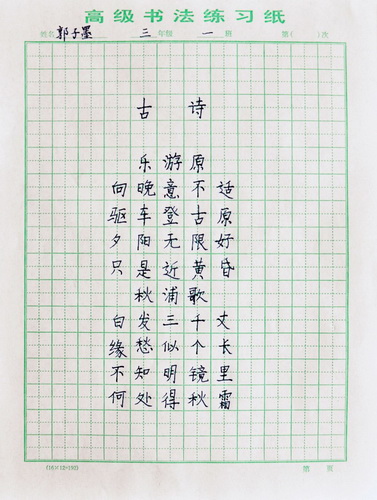 高级书法练习纸
姓名 郭子墨 三 年级 一 班 第( )次
古 诗
乐游原
向晚意不适
驱车登古原
夕阳无限好
只是近黄昏
秋浦歌
白发三千丈
缘愁似个长
不知明镜里
何处得秋霜
(16×12=192)
第 页